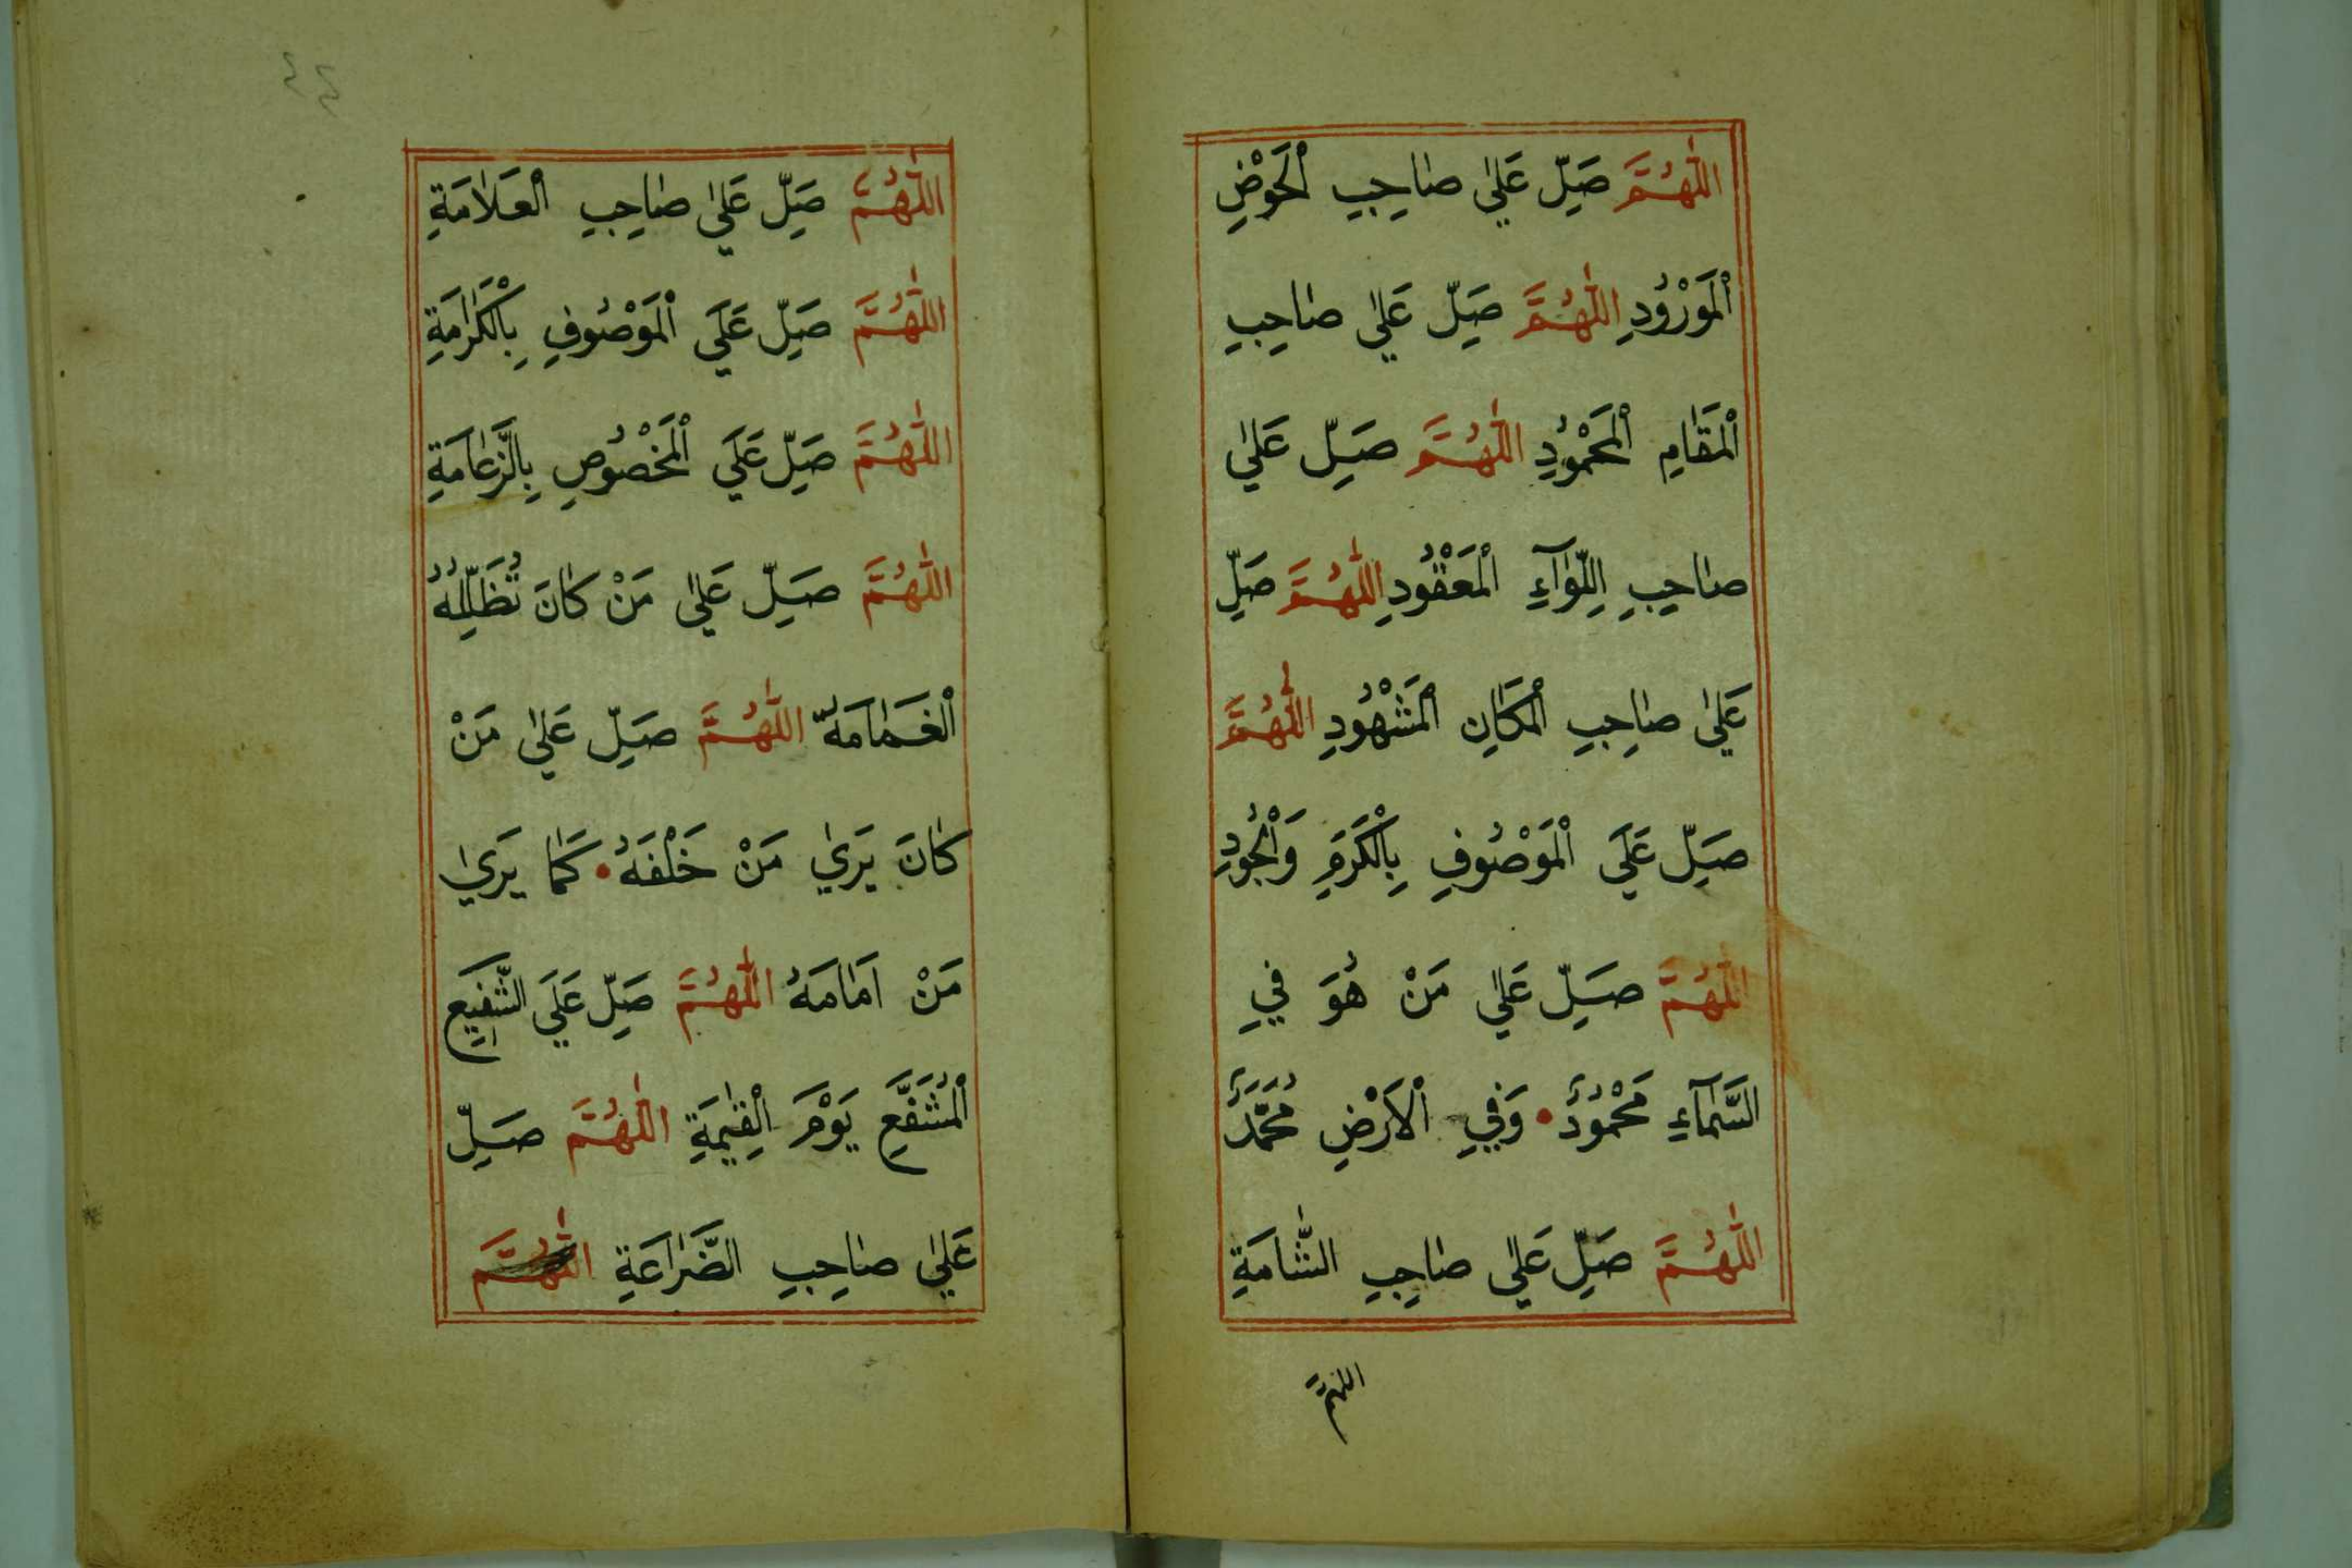 اللّٰهُمَّ صَلِّ عَلٰي صٰاحِبِ الْحَوْضِ
الْمَوْرُوْدِ اللّٰهُمَّ صَلِّ عَلٰي صٰاحِبِ
الْمَقٰامِ الْمَحْمُوْدِ اللّٰهُمَّ صَلِّ عَلٰي
صٰاحِبِ اللِّوٰٓاءِ الْمَعْقُوْدِ اللّٰهُمَّ صَلِّ
عَلٰي صٰاحِبِ الْمَكٰانِ الْمَشْهُوْدِ اللّٰهُمَّ
صَلِّ عَلَي الْمَوْصُوْفِ بِالْكَرَمِ وَالْجُوْدِ
اللّٰهُمَّ صَلِّ عَلٰي مَنْ هُوَ فِي
السَّمَآءِ مَحْمُوْدٌ • وَفِي الْاَرْضِ مُحَمَّدٌ
اللّٰهُمَّ صَلِّ عَلٰي صٰاحِبِ الشّٰامَةِ
اللهم
٤٤
اللّٰهُمَّ صَلِّ عَلٰي صٰاحِبِ الْعَلٰامَةِ
اللّٰهُمَّ صَلِّ عَلَي الْمَوْصُوْفِ بِالْكَرٰامَةِ
اللّٰهُمَّ صَلِّ عَلَي الْمَخْصُوْصِ بِالزَّعٰامَةِ
اللّٰهُمَّ صَلِّ عَلٰي مَنْ كٰانَ تُظَلِّلُهُ
الْغَمٰامَةُ اللّٰهُمَّ صَلِّ عَلٰي مَنْ
كٰانَ يَرٰي مَنْ خَلْفَهُ • كَمٰا يَرٰي
مَنْ اَمٰامَهُ اللّٰهُمَّ صَلِّ عَلَي الشَّفِيْعِ
الْمُشَفَّعِ يَوْمَ الْقِيٰمَةِ اللّٰهُمَّ صَلِّ
عَلٰي صٰاحِبِ الضَّرٰاعَةِ اللّٰهُمَّ